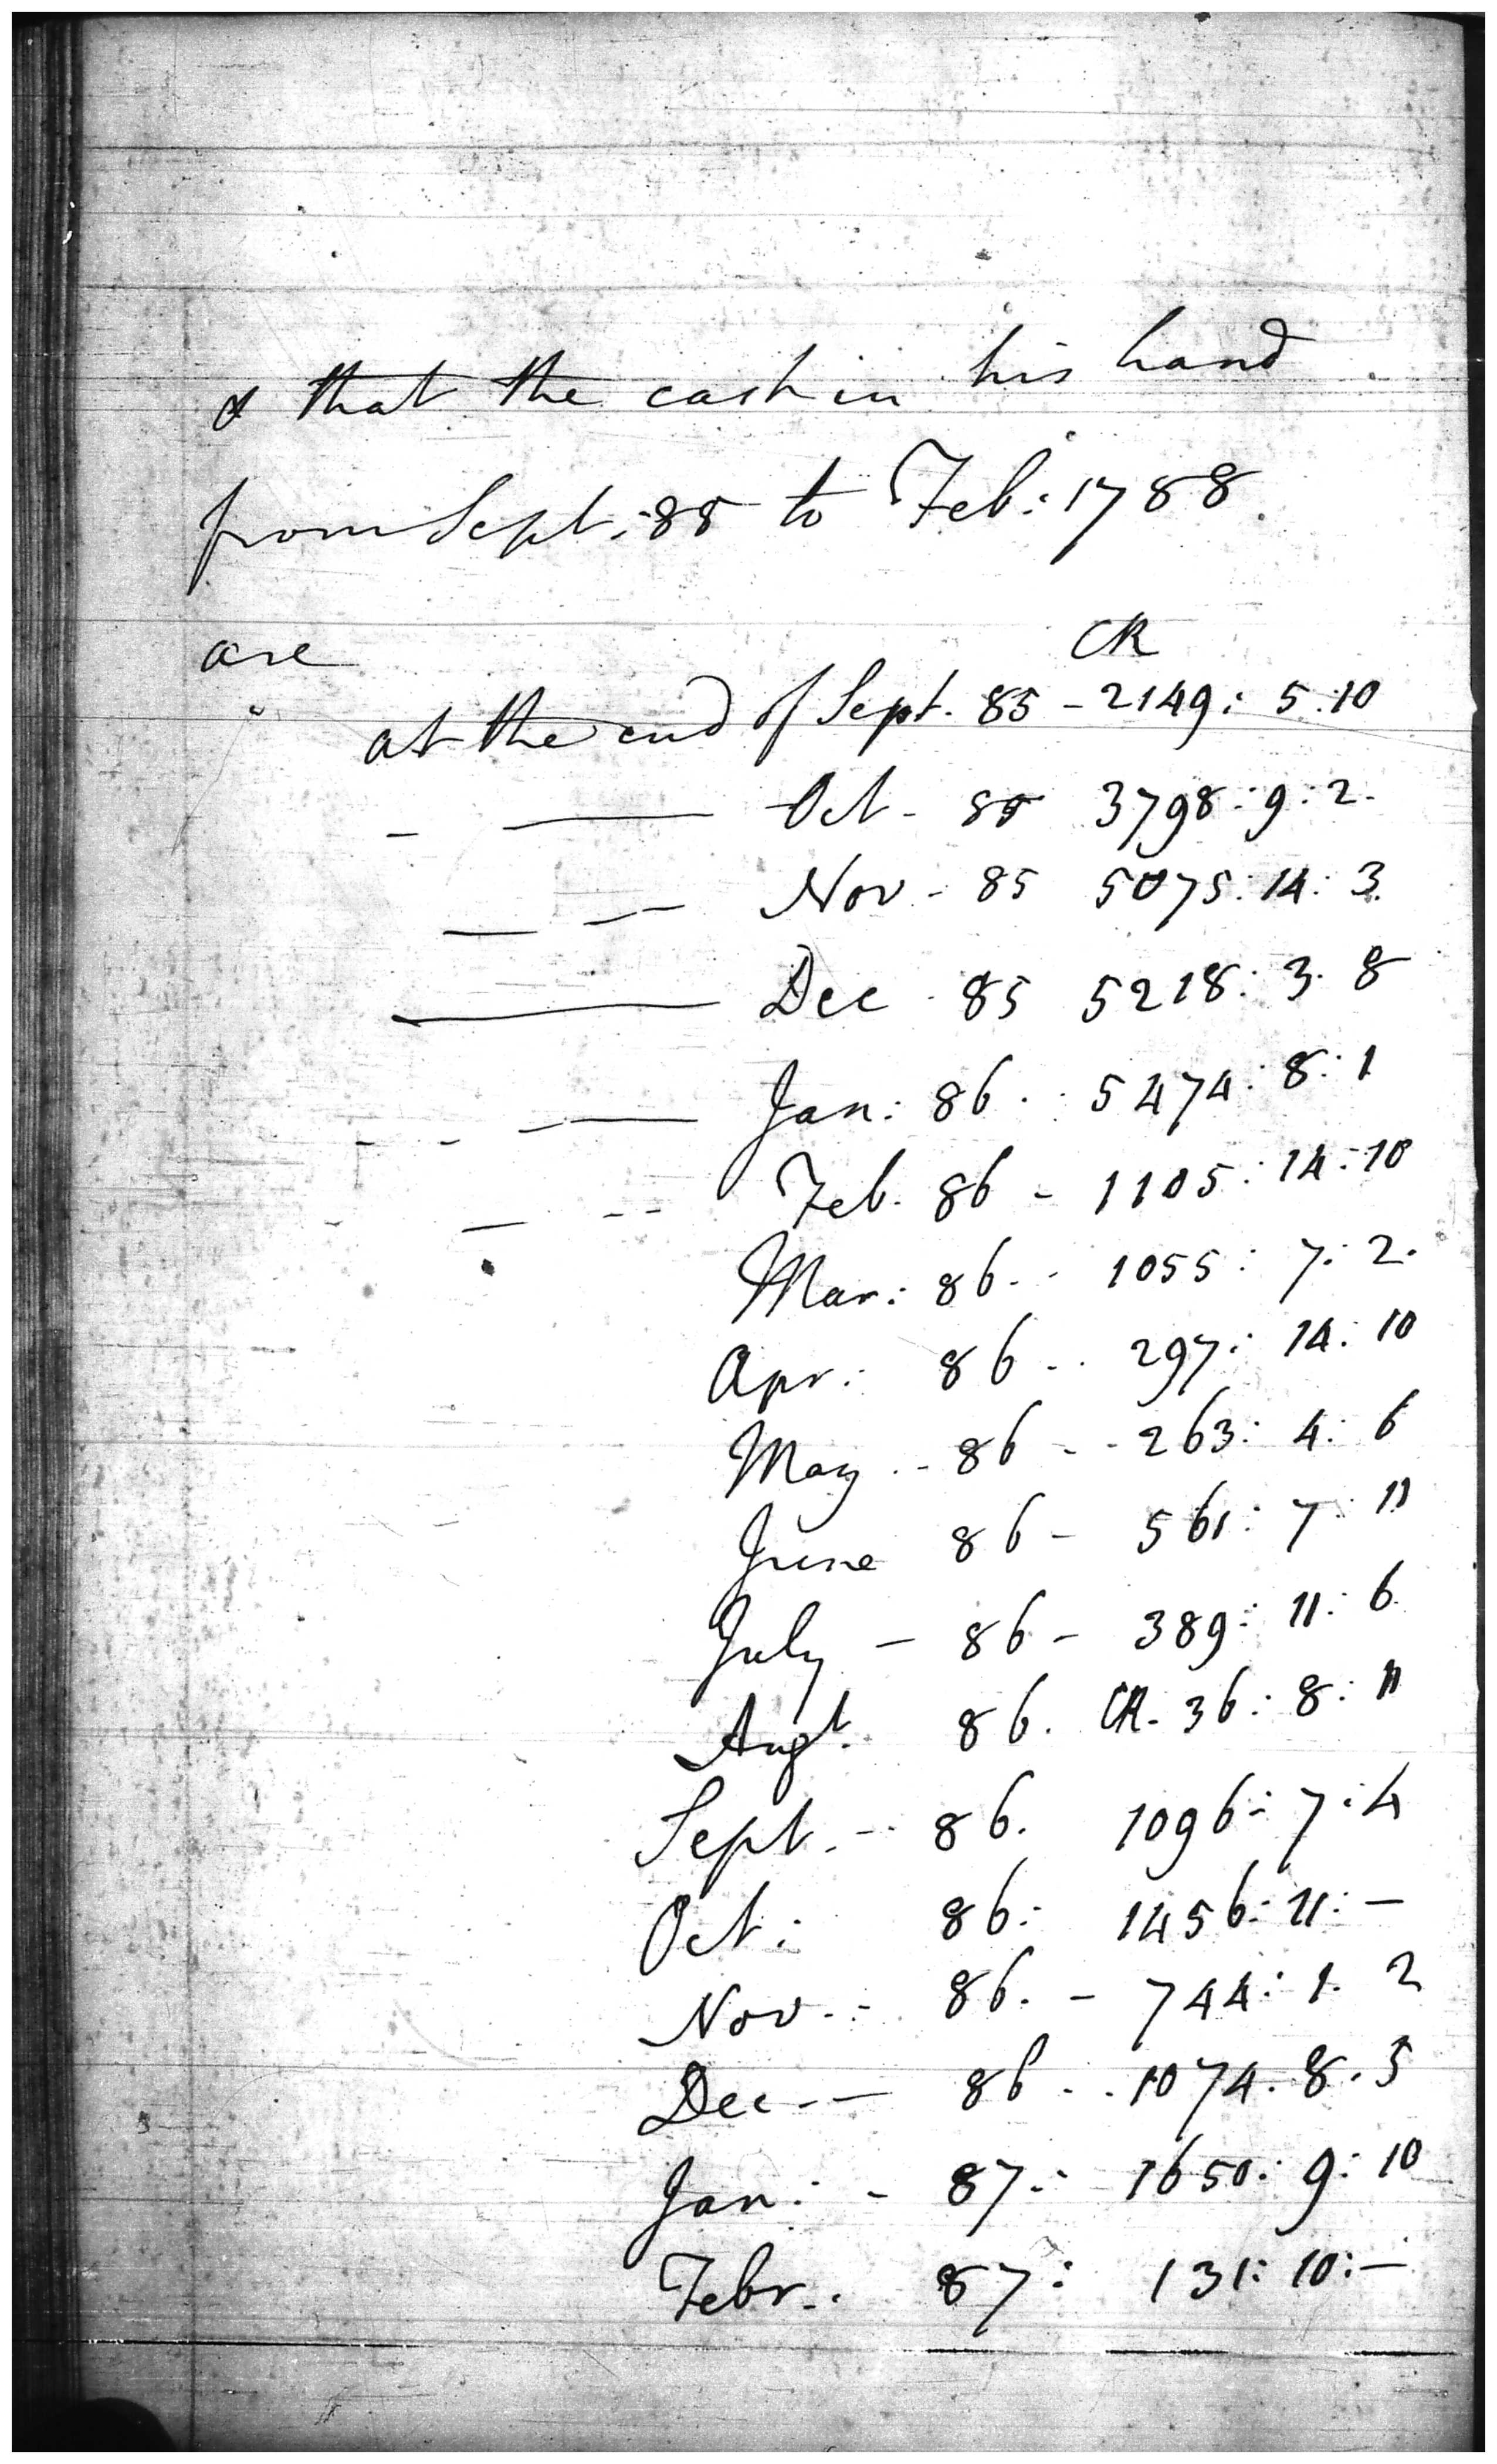 & that the cash in his hand
from Sept: 85 to Feb: 1788.
are CR
at the end of Sept. 85 - 2149: 5:10
- — Oct - 85 3798: 9: 2.
— — Nov - 85 5075: 14: 3.
— Dec - 85 5218: 3. 8
- - — Jan: 86 . 5474: 8: 1
— -- Feb. 86 - 1105: 14: 10
Mar: 86 - - 1055: 7: 2.
Apr: 86 - . 297: 14: 10
May - 86 - - 263: 4: 6
June 86 - 561: 7: 11
July - 86 - 389: 11: 6
Augt. 86. CR. 36: 8: 11
Sept. - 86. 1096: 7: 4
Oct: 86: 1456: 11: -
Nov - 86. - 744: 1. 2
Dec - - 86 . . 1074. 8. 5
Jan: - 87: 1650: 9: 10
Febr. 87: 131: 10: -